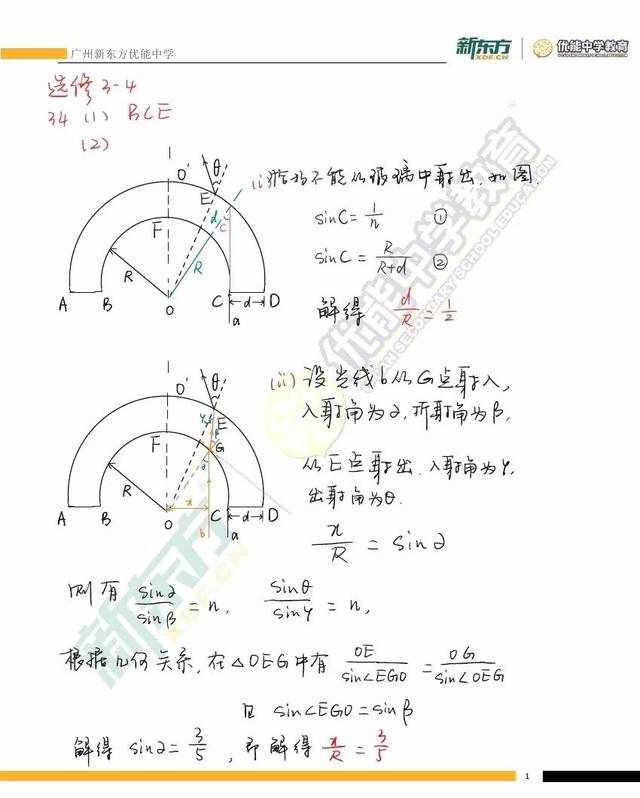 广州新东方优能中学
新东方 XDF.CN 优能中学教育
选修3-4
34 (1) BCE
(2)
(i) 恰好不能从玻璃中射出,如图.
sinC = 1/n ①
sinC = R/(R+d) ②
解得 d/R = 1/2
O' θ E F d C R R A B O C d D a
(ii) 设光线b从G点射入,
入射角为α,折射角为β,
从E点射出,入射角为γ,
出射角为θ.
x/R = sinα
O' θ E γ β G F α R x A B O C d D b a
则有 sinα/sinβ = n, sinθ/sinγ = n,
根据几何关系,在△OEG中有 OE/sin∠EGO = OG/sin∠OEG
且 sin∠EGO = sinβ
解得 sinα = 3/5, 即解得 x/R = 3/5
1
优能中学教育
UCAN SECONDARY SCHOOL EDUCATION
新东方
XDF.CN